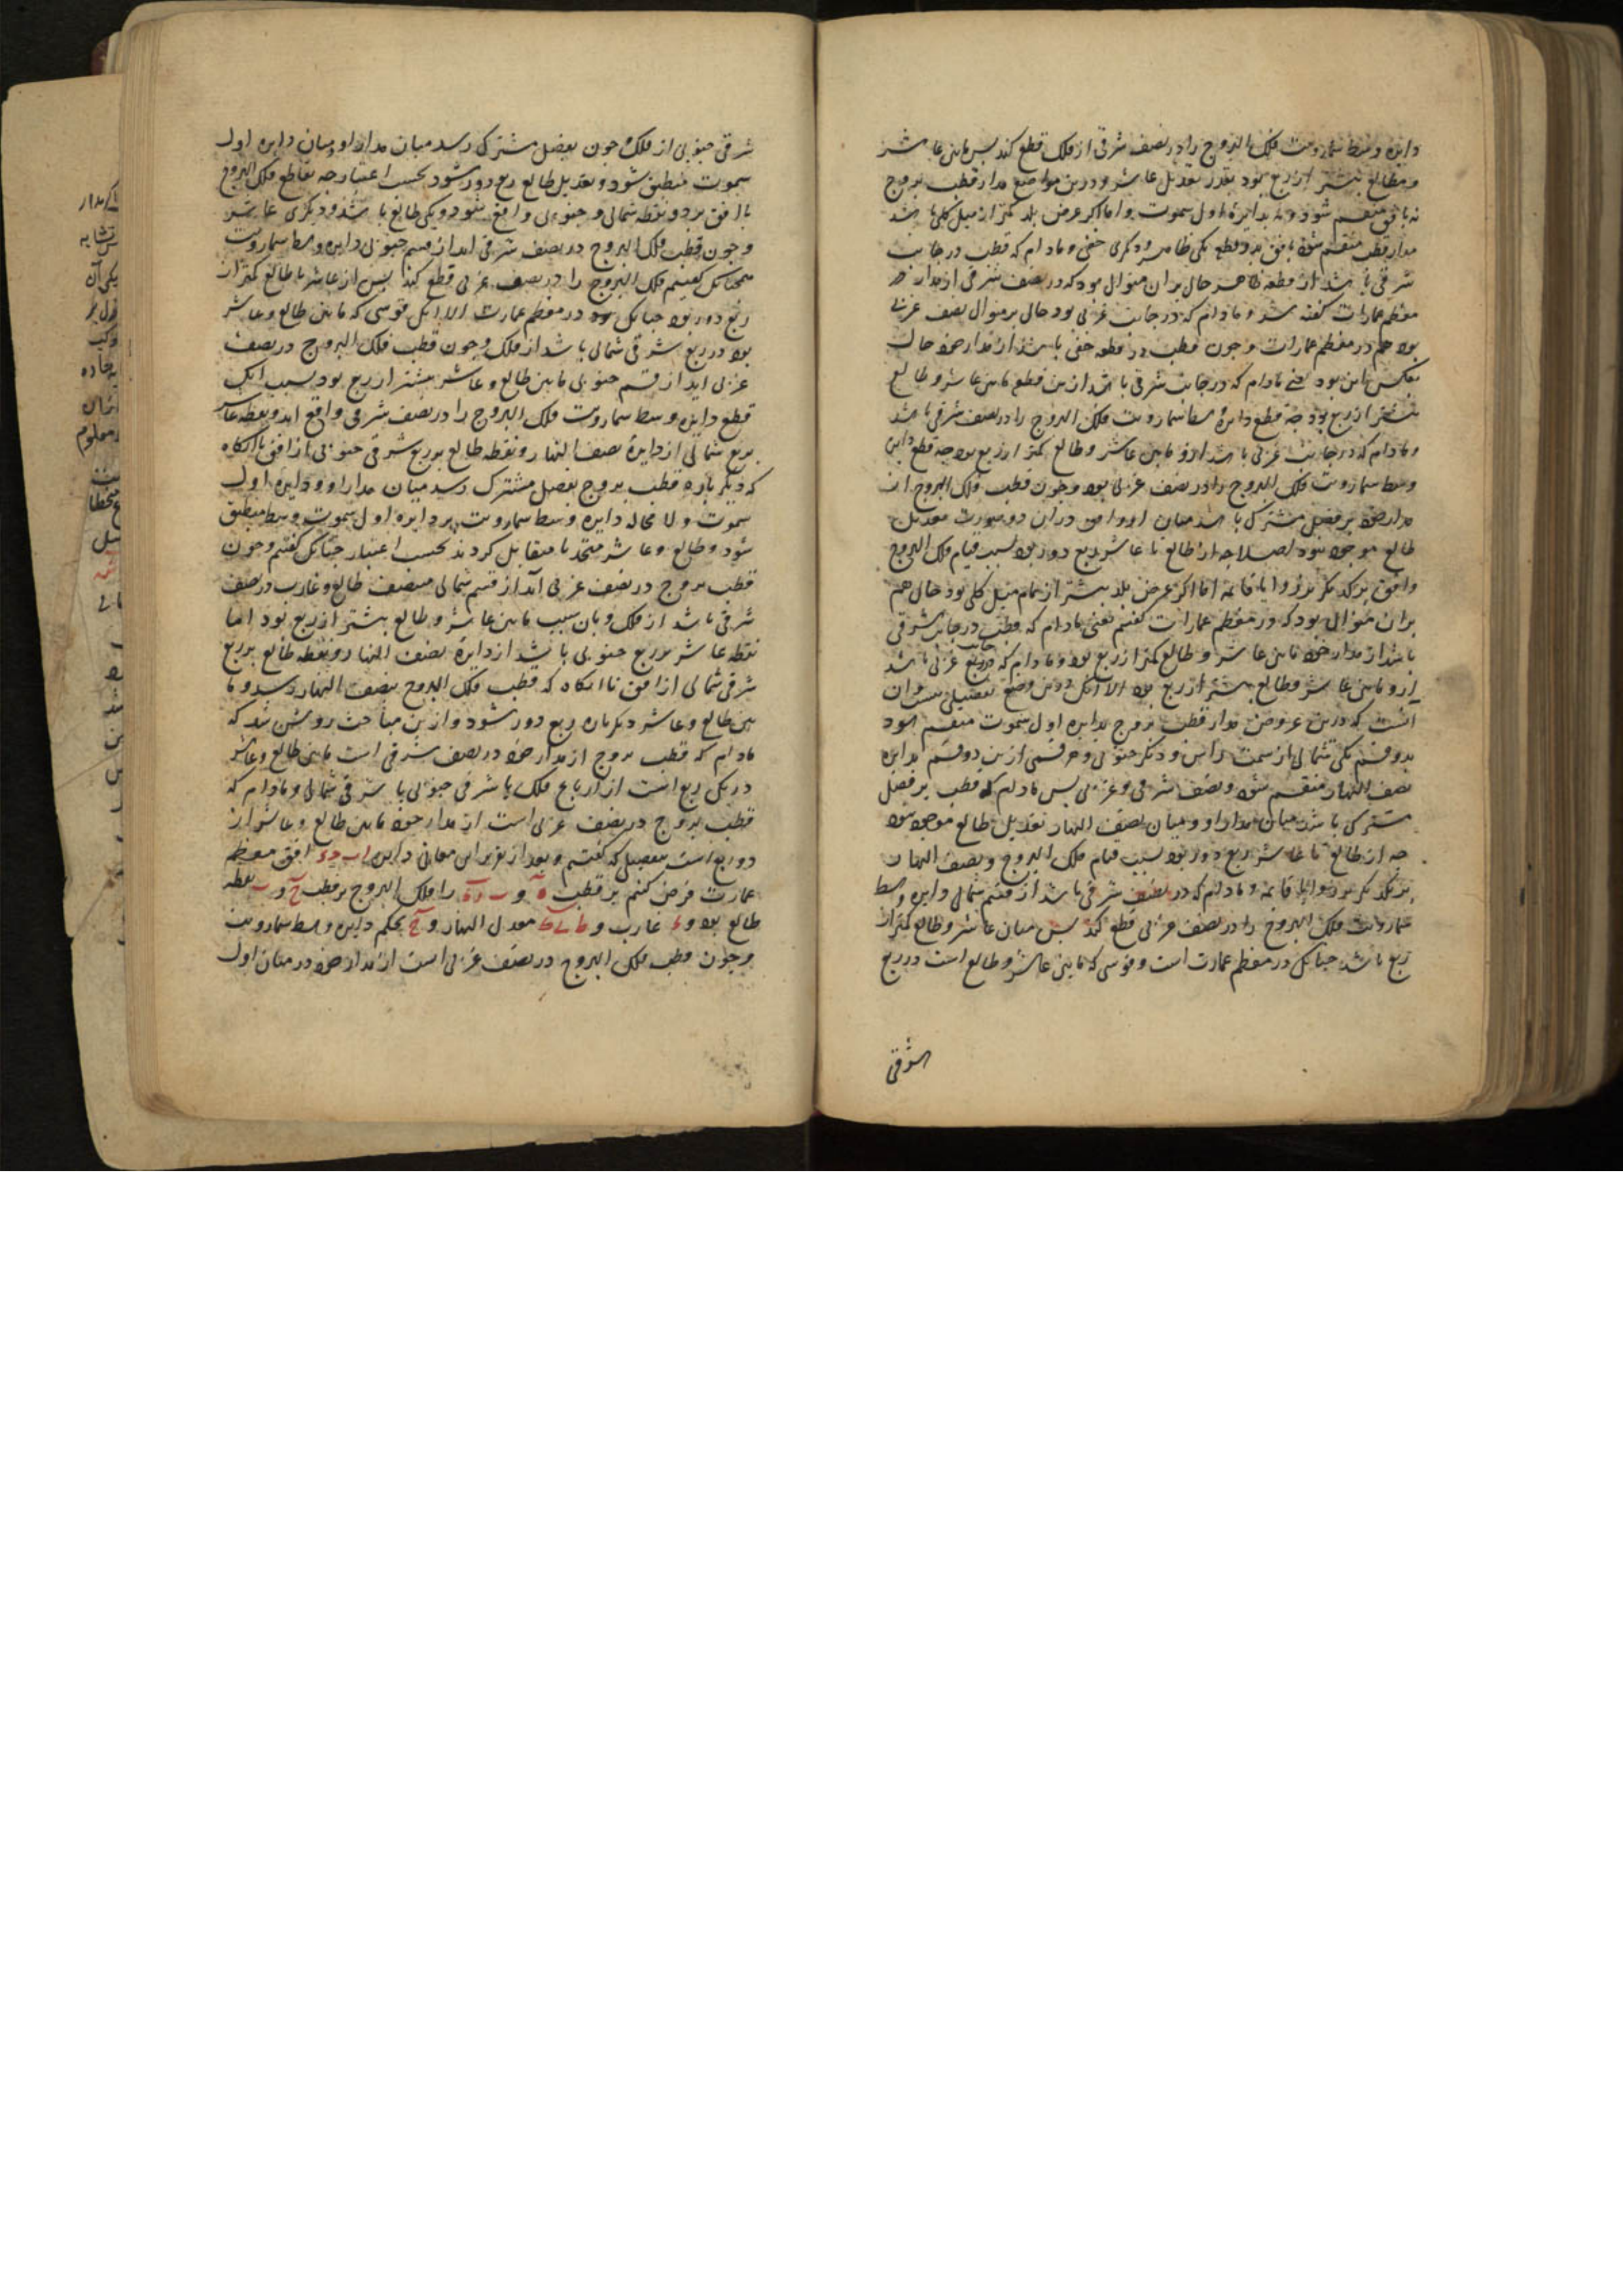 دایره وسط سماء رویت فلک البروج را در نصف شرقی از فلک قطع کند بس مابین عاشر
و مطالع بیشتر از ربع بود بقدر تعدیل عاشر و درین مواضع مدار قطب بروج
نه بافق منقسم شود و نه بدایرهٔ اول سموت و اما اکر عرض بلد کمتر از میل کلی باشد
مدار قطب منقسم شود بافق بدو قطعه یکی ظاهر و دیکری خفی و مادام که قطب در جانب
شرقی باشد از قطعه ظاهر حال بران منوال بود که در نصف شرقی از مدار در
معظم عمارات کفته شد و مادام که در جانب غربی بود حال بر منوال نصف غربی
بود هم در معظم عمارات و چون قطب در قطعه خفی باشد از مدار خود حال
بعکس این بود یعنی مادام که در جانب شرقی باشد ازین قطعه مابین عاشر و طالع
بیشتر از ربع بود چه قطع دایرهٔ وسط سماء رویت فلک البروج را در نصف شرقی باشد
و مادام که در جانب غربی باشد ازو مابین عاشر و طالع کمتر از ربع بود چه قطع دایره
وسط سماء رویت فلک البروج را در نصف غربی بود و چون قطب فلک البروج از
مدار خود بر فصل مشترک باشد میان او و افق دران دو صورت تعدیل
طالع موجود نبود اصلا چه از طالع تا عاشر ربع دور بود بسبب قیام فلک البروج
وافق بر یکدیکر بزوایا قائمه اما اکر عرض بلد بیشتر از تمام میل کلی بود حال هم
بران منوال بود که در معظم عمارات کفتیم یعنی مادام که قطب در جانب شرقی
باشد از مدار خود مابین عاشر و طالع کمتر از ربع بود و مادام که در جانب غربی باشد
ازو مابین عاشر و طالع بیشتر از ربع بود الا آنک درین وضع تفصیلی هست و آن
آنست که درین عروض مدار قطب بروج بدایره اول سموت منقسم بود
بدو قسم یکی شمالی از سمت راس و دیکر جنوبی و هر قسمی ازین دو قسم بدایره
نصف النهار منقسم شود بنصف شرقی و غربی بس مادام که قطب بر فصل
مشترک باشد میان مدار او و میان نصف النهار تعدیل طالع موجود نبود
چه از طالع تا عاشر ربع دور بود بسبب قیام فلک البروج و نصف النهار
بر یکدیکر بزوایا قائمه و مادام که در نصف شرقی باشد از قسم شمالی دایره وسط
سماء رویت فلک البروج را در نصف غربی قطع کند بس میان عاشر و طالع کمتر از
ربع باشد چنانک در معظم عمارت است و قوسی که مابین عاشر و طالع است در ربع
الشرقی
شرقی جنوبی از فلک چون بفصل مشترک رسد میان مدار او و میان دایره اول
سموت منطبق شود و تعدیل طالع ربع دور شود بحسب اعتبار چه تقاطع فلک البروج
با افق بر دو نقطه شمالی و جنوبی واقع شود و یکی طالع باشد و دیکری عاشر
و چون قطب فلک البروج در نصف شرقی اید از قسم جنوبی دایره وسط سماء رویت
همچنانک کفتیم فلک البروج را در نصف غربی قطع کند بس از عاشر تا طالع کمتر از
ربع دور بود چنانک بود در معظم عمارت الا انک قوسی که مابین طالع و عاشر
بود در ربع شرقی شمالی باشد از فلک و چون قطب فلک البروج در نصف
غربی اید از قسم جنوبی مابین طالع و عاشر بیشتر از ربع بود بسبب انک
قطع دایره وسط سماء رویت فلک البروج را در نصف شرقی واقع اید و نقطه عاشر
بربع شمالی از دایرهٔ نصف النهار و نقطه طالع بربع شرقی جنوبی از افق تا انکاه
که دیکر باره قطب بروج بفصل مشترک رسد میان مدار او و دایره اول
سموت و لا محاله دایره وسط سماء رویت بر دایره اول سموت منطبق
شود و طالع و عاشر متحد یا متقابل کردند بحسب اعتبار چنانک کفتیم و چون
قطب بروج در نصف غربی آید از قسم شمالی منصف طالع و غارب در نصف
شرقی باشد از فلک و بآن سبب مابین عاشر و طالع بیشتر از ربع بود اما
نقطه عاشر بربع جنوبی باشد از دایرهٔ نصف النهار و نقطه طالع بربع
شرقی شمالی از افق تا انکاه که قطب فلک البروج بنصف النهار رسد و ما
بین طالع و عاشر دیکر باره ربع دور شود و ازین مباحث روشن شد که
مادام که قطب بروج از مدار خود در نصف شرقی است مابین طالع و عاشر
در یک ربع است از ارباع فلک یا شرقی جنوبی یا شرقی شمالی و مادام که
قطب بروج در نصف غربی است از مدار خود مابین طالع و عاشر از
دو ربع است بتفصیلی که کفتیم و بعد از تقریر این معانی دایرهٔ ا ب ج د افق معظم
عمارت فرض کنیم بر قطب ه و ب ز د را فلک البروج بر قطب ح و ب نقطه
طالع بود و د غارب و معدل النهار و بحکم دایره وسط سماء رویت
و چون قطب فلک البروج در نصف غربی است از مدار خود در میان اول